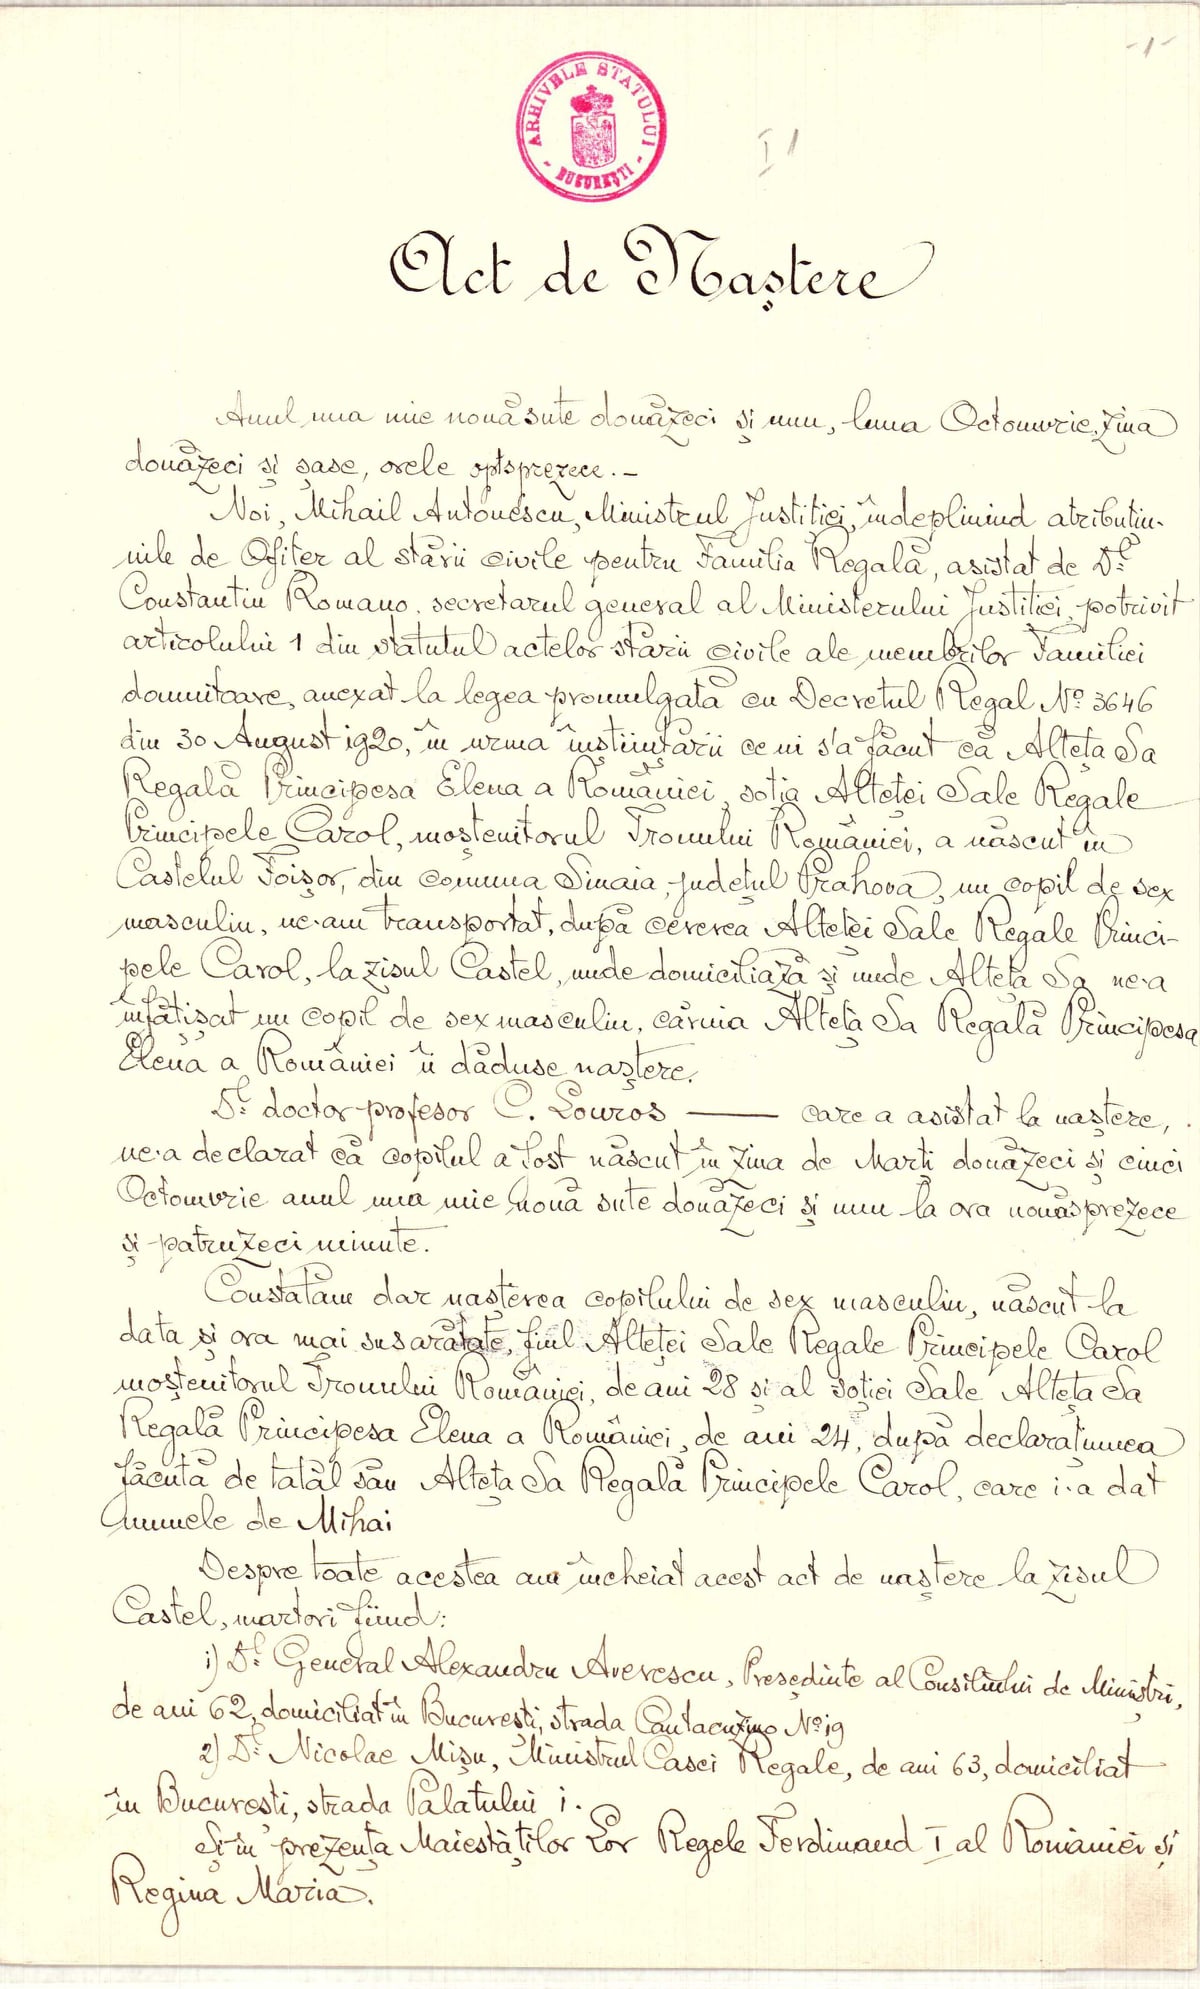 -1-
ARHIVELE STATULUI
BUCUREȘTI
I 1
Act de Naștere
Anul una mie nouă sute douăzeci și unu, luna Octomvrie, ziua
douăzeci și șase, orele optsprezece.-
Noi, Mihail Antonescu, Ministrul Justiției, îndeplinind atribuțiu-
nile de Ofițer al stării civile pentru Familia Regală, asistat de Dl.
Constantin Romano, secretarul general al Ministerului Justiției, potrivit
articolului 1 din statutul actelor stării civile ale membrilor Familiei
domnitoare, anexat la legea promulgată cu Decretul Regal No 3646
din 30 August 1920, în urma înștiințării ce ni s'a făcut că Alteța Sa
Regală Principesa Elena a României, soția Alteței Sale Regale
Principele Carol, moștenitorul Tronului României, a născut în
Castelul Foișor, din comuna Sinaia, județul Prahova, un copil de sex
masculin, ne-am transportat, după cererea Alteței Sale Regale Princi-
pele Carol, la zisul Castel, unde domiciliază și unde Alteța Sa ne-a
înfățișat un copil de sex masculin, căruia Alteța Sa Regală Principesa
Elena a României îi dăduse naștere.
Dl. doctor-profesor C. Louros — care a asistat la naștere,
ne-a declarat că copilul a fost născut în ziua de Marți douăzeci și cinci
Octomvrie anul una mie nouă sute douăzeci și unu la ora nouăsprezece
și patruzeci minute.
Constatăm dar nașterea copilului de sex masculin, născut la
data și ora mai sus arătate, fiul Alteței Sale Regale Principele Carol
moștenitorul Tronului României, de ani 28 și al soției Sale Alteța Sa
Regală Principesa Elena a României, de ani 24, după declarațiunea
făcută de tatăl său Alteța Sa Regală Principele Carol, care i-a dat
numele de Mihai
Despre toate acestea am încheiat acest act de naștere la zisul
Castel, martori fiind:
1) Dl. General Alexandru Averescu, Președinte al Consiliului de Miniștri,
de ani 62, domiciliat în București, strada Cantacuzino No 19
2) Dl. Nicolae Mișu, Ministrul Casei Regale, de ani 63, domiciliat
în București, strada Palatului 1.
Și în prezența Maiestăților Lor Regele Ferdinand I al României și
Regina Maria.